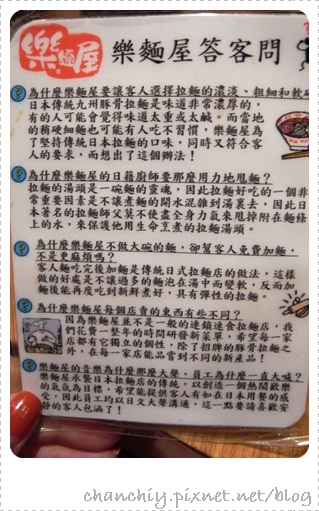 樂麵屋
樂麵屋答客問
為什麼樂麵屋要讓客人選擇拉麵的濃淡、粗細和軟硬
日本傳統九州豚骨拉麵是味道非常濃厚的，
有的人可能會覺得味道太重或太鹹。而當地
的稍硬細麵也可能有人吃不習慣，樂麵屋為
了堅持傳統日本拉麵的口味，同時又符合客
人的要求，而想出了這個辦法！
為什麼樂麵屋的日籍廚師要那麼用力地甩麵？
拉麵的湯頭是一碗麵的靈魂，因此拉麵好吃的一個非
常重要因素是不讓煮麵的開水混雜到湯裏去，因此日
本著名的拉麵師父莫不使盡全身力氣來甩掉附在麵條
上的水，來保護他用生命烹煮的拉麵湯頭。
為什麼樂麵屋不做大碗的麵，卻幫客人免費加麵，
不是更麻煩嗎？
客人麵吃完後加麵是傳統日式拉麵店的做法，這樣
做的好處是不讓過多的麵泡在湯中而變軟，反而加
麵後能再度吃到新鮮煮好，具有彈性的拉麵。
為什麼樂麵屋每個店賣的東西有些不同？
因為樂麵屋並不是一般的連鎖速食拉麵店，我
們花費一整年的時間研發新菜單，希望每一家
店都有它獨立的個性，除了招牌的豚骨拉麵之
外，在每一家店能品嘗到不同的新產品！
樂麵屋的音樂為什麼那麼大聲，員工為什麼一直大喊？
樂麵屋承襲日本拉麵店的傳統，以創造一個熱鬧歡樂
的氣氛為目標，希望能提供客人有如在日本用餐的感
受，因此員工均以日文大聲溝通，這一點要請喜歡安
靜的客人包涵了！
chanchiy.pixnet.net/blog